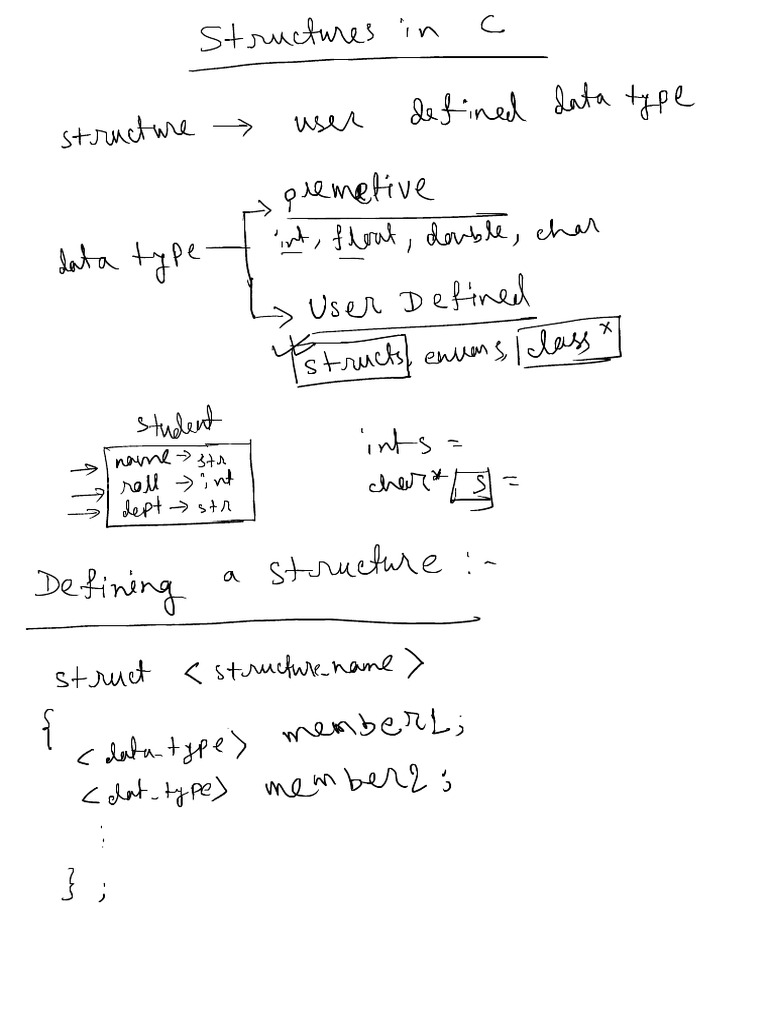 Structures in C
structure → user defined data type
premetive
int, float, double, char
data type
User Defined
structs, enums, class*
student
name → str
roll → int
dept → str
int s =
char* s =
Defining a structure :-
struct <structure_name>
{
<data_type> member1;
<dat_type> member2;
⋮
};